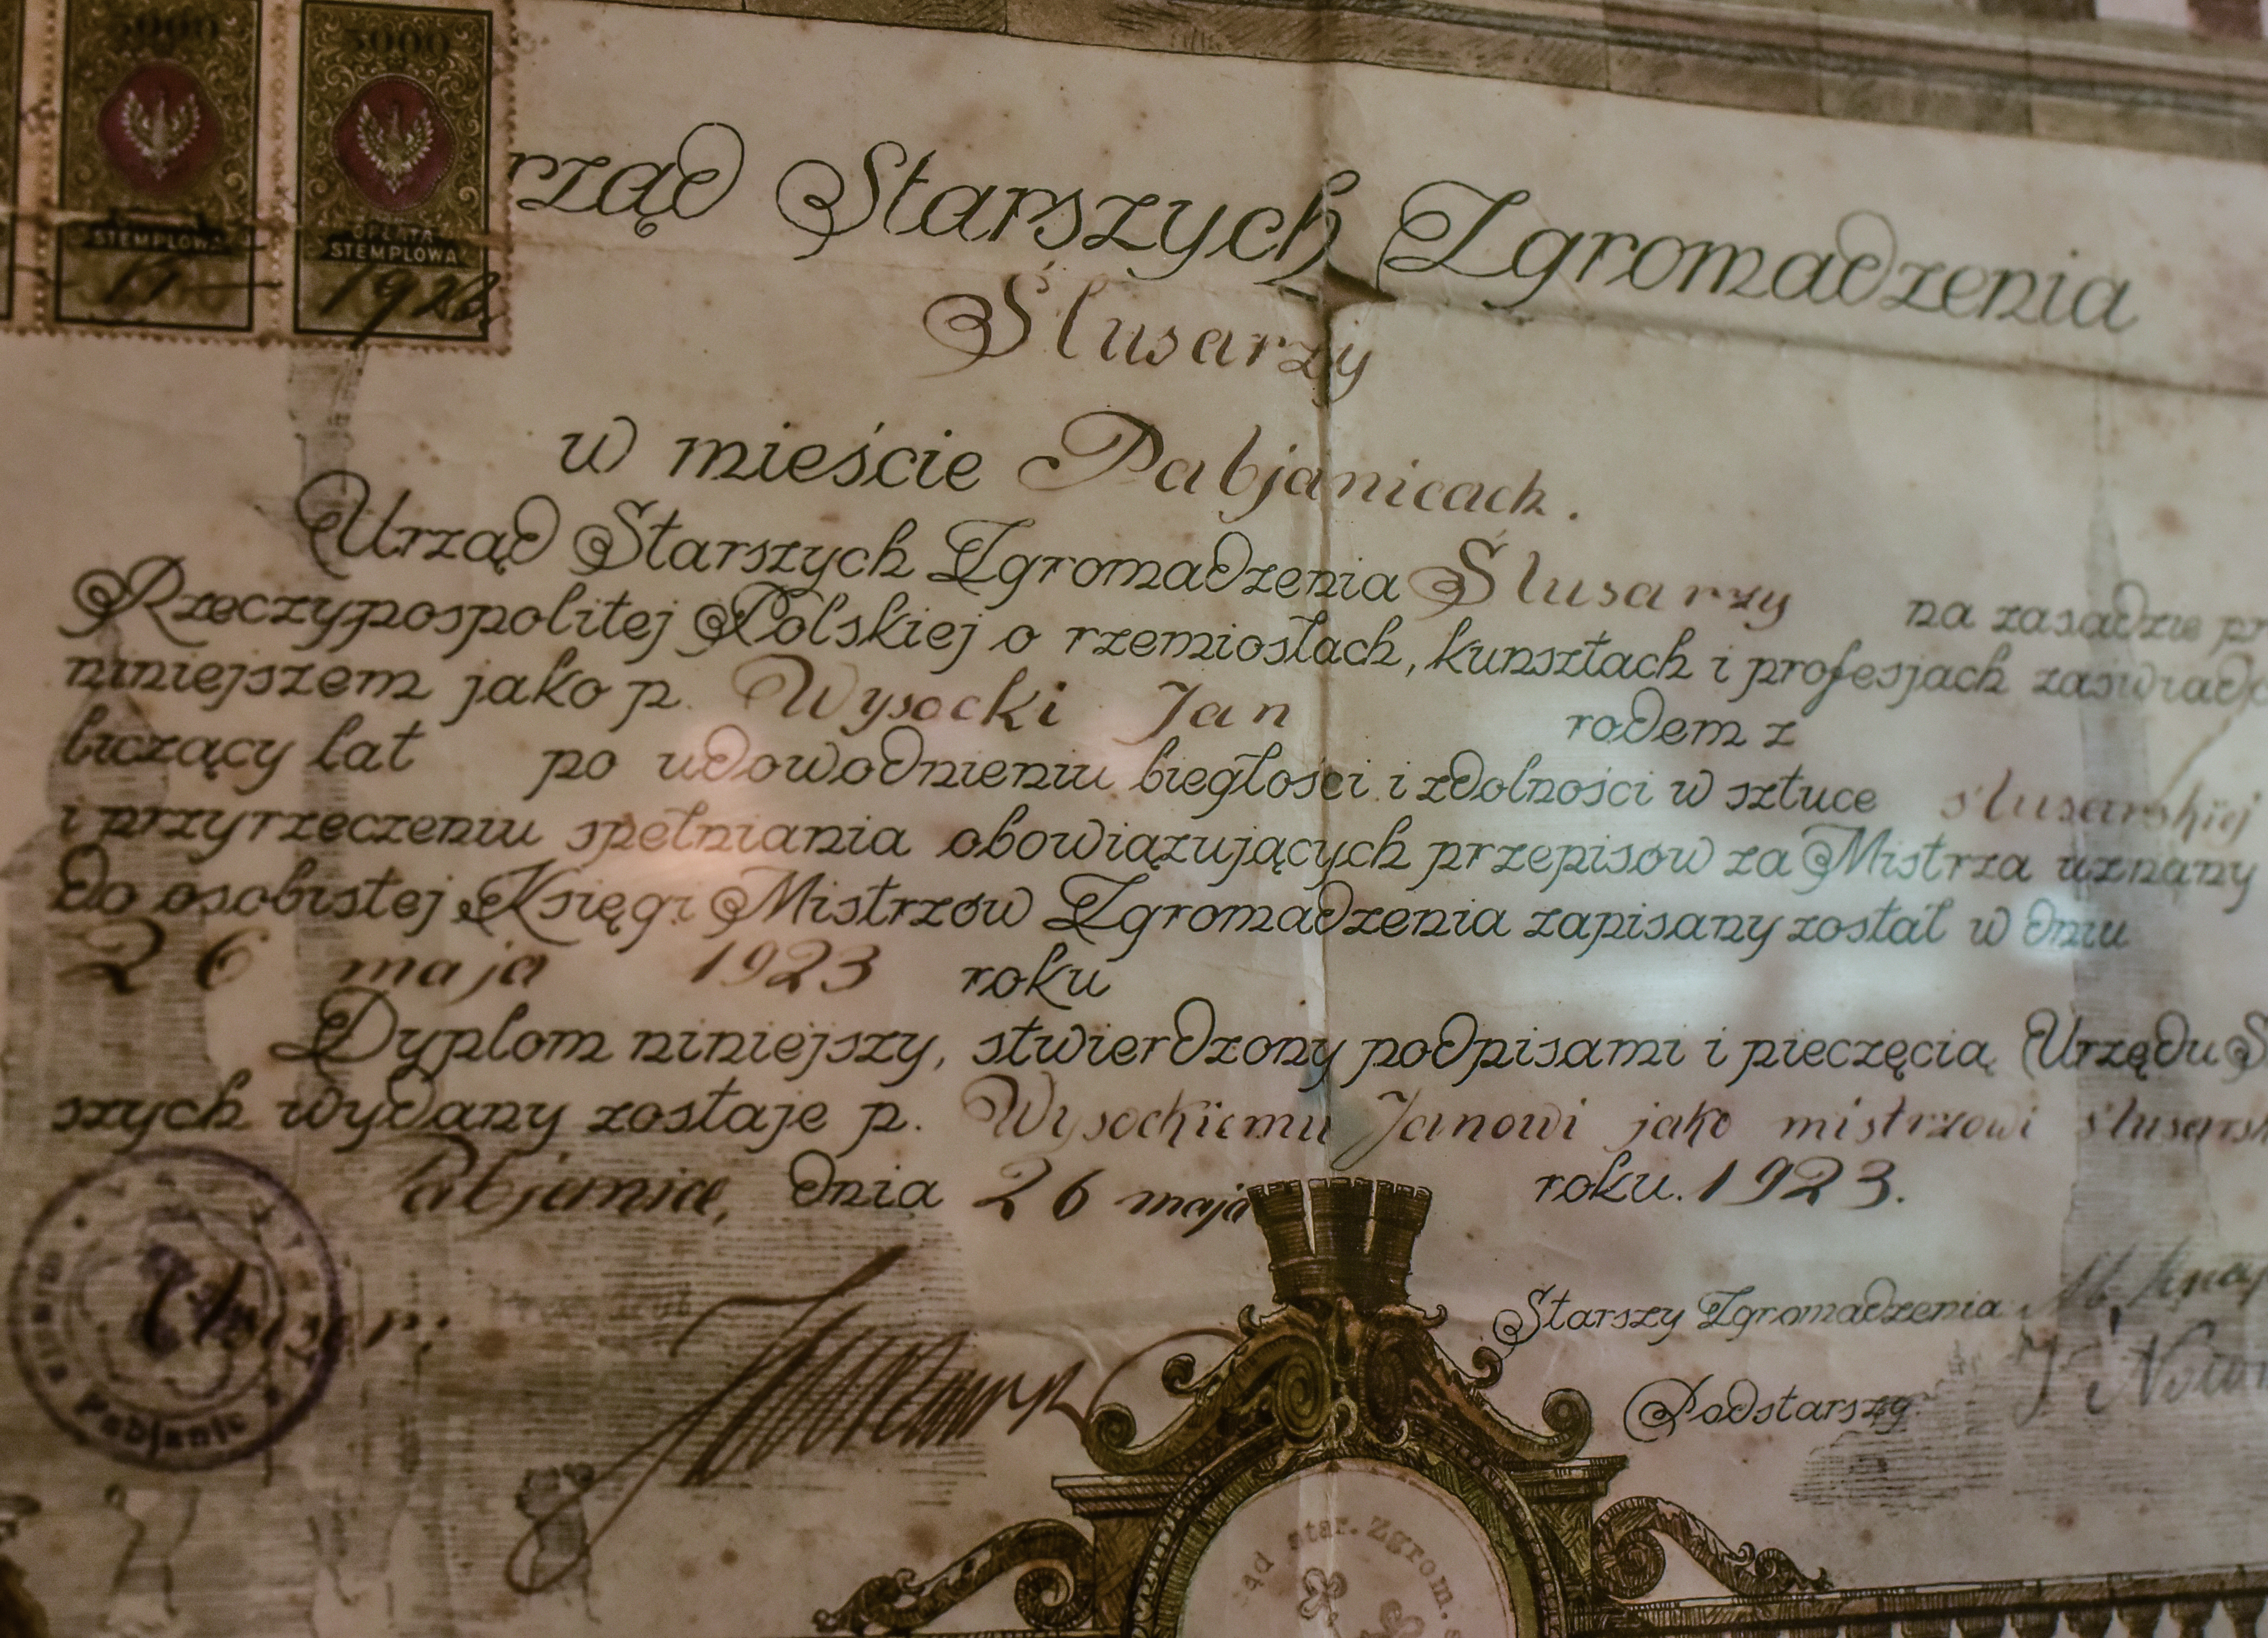 5000 5000
STEMPLOWA OPŁATA
STEMPLOWA
rząd Starszych Zgromadzenia
Ślusarzy
w mieście Pabjanicach.
Urząd Starszych Zgromadzenia Ślusarzy na zasadzie pr
Rzeczypospolitej Polskiej o rzemiosłach, kunsztach i profesjach zaświadc
niniejszem jako p. Wysocki Jan rodem z
liczący lat po udowodnieniu biegłości i zdolności w sztuce ślusarskiej
i przyrzeczeniu spełniania obowiązujących przepisów za Mistrza uznany
do osobistej Księgi Mistrzów Zgromadzenia zapisany został w dniu
26 maja 1923 roku
Dyplom niniejszy, stwierdzony podpisami i pieczęcią Urzędu S
szych wydany zostaje p. Wysockiemu Janowi jako mistrzowi ślusarsk
Pabjanice, dnia 26 maja roku. 1923.
Starszy Zgromadzenia
Podstarszy
Pabjanic
ąd star. Zgrom.